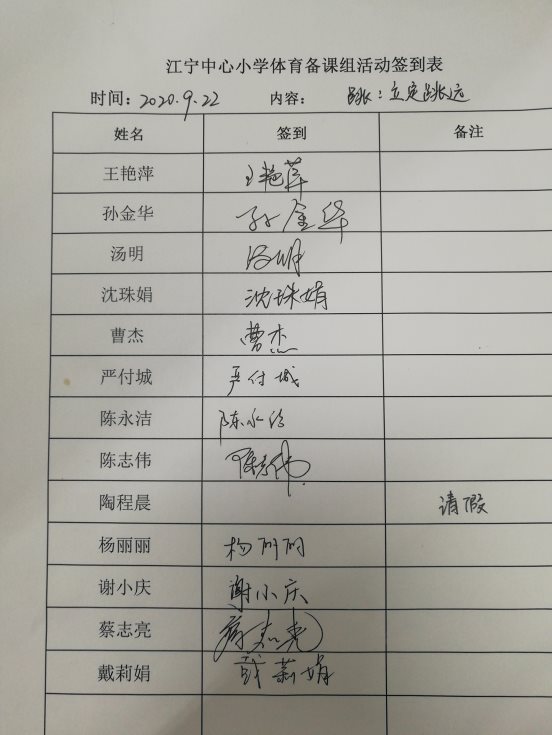 江宁中心小学体育备课组活动签到表
时间：2020.9.22 内容： 跳：立定跳远
姓名 签到 备注
王艳萍 王艳萍
孙金华 孙金华
汤明 汤明
沈珠娟 沈珠娟
曹杰 曹杰
严付城 严付城
陈永洁 陈永洁
陈志伟 陈志伟
陶程晨 请假
杨丽丽 杨丽丽
谢小庆 谢小庆
蔡志亮 蔡志亮
戴莉娟 戴莉娟